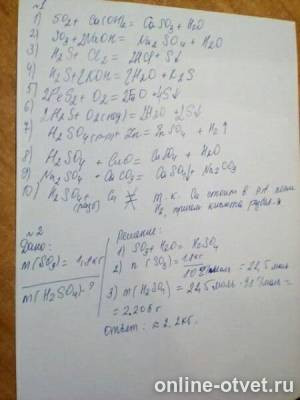 №1
1) SO₂ + Ca(OH)₂ = CaSO₃ + H₂O
2) SO₃ + 2NaOH = Na₂SO₄ + H₂O
3) H₂S + Cl₂ = 2HCl + S↓
4) H₂S + 2KOH = 2H₂O + K₂S
5) 2FeS₂ + O₂ = 2FeO + 4S↓
6) 2H₂S + O₂ = 2H₂O + 2S↓
7) H₂SO₄ + Zn = ZnSO₄ + H₂↑
8) H₂SO₄ + CuO = CuSO₄ + H₂O
9) Na₂SO₄ + CaCO₃ = CaSO₄↓ + Na₂CO₃
10) H₂SO₄(разб) + Cu т.к. Cu стоит в р.а. после
H₂, причем кислота
№2
Дано:
m(SO₃) = 1,8кг
m(H₂SO₄) - ?
Решение:
1) SO₃ + H₂O = H₂SO₄
2) n(SO₃) = = 22,5 моль
3) m(H₂SO₄) = 22,5 моль · =
= 2,205кг
Ответ: ≈ 2,2кг.
online-otvet.ru